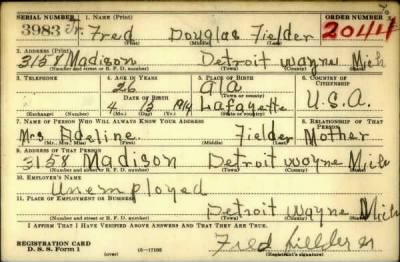 SERIAL NUMBER 1. NAME (Print) ORDER NUMBER
3983 Fred Douglas Fielder 2044
(First) (Middle) (Last)
2. ADDRESS (Print)
3158 Madison Detroit Wayne Mich
(Number and street or R. F. D. number) (Town) (County) (State)
3. TELEPHONE 4. AGE IN YEARS 5. PLACE OF BIRTH 6. COUNTRY OF CITIZENSHIP
26 ala
DATE OF BIRTH (Town or county)
4 15 1914 Lafayette U.S.A.
(Exchange) (Number) (Mo.) (Day) (Yr.) (State or country)
7. NAME OF PERSON WHO WILL ALWAYS KNOW YOUR ADDRESS 8. RELATIONSHIP OF THAT PERSON
Mrs Adeline Fielder Mother
(Mr., Mrs., Miss) (First) (Middle) (Last)
9. ADDRESS OF THAT PERSON
3158 Madison Detroit Wayne Mich
(Number and street or R. F. D. number) (Town) (County) (State)
10. EMPLOYER'S NAME
Unemployed
11. PLACE OF EMPLOYMENT OR BUSINESS
Detroit Wayne Mich
(Number and street or R. F. D. number) (Town) (County) (State)
I AFFIRM THAT I HAVE VERIFIED ABOVE ANSWERS AND THAT THEY ARE TRUE.
REGISTRATION CARD
D. S. S. Form 1 (over) 16—17105 Fred Fielder
(Registrant's signature)